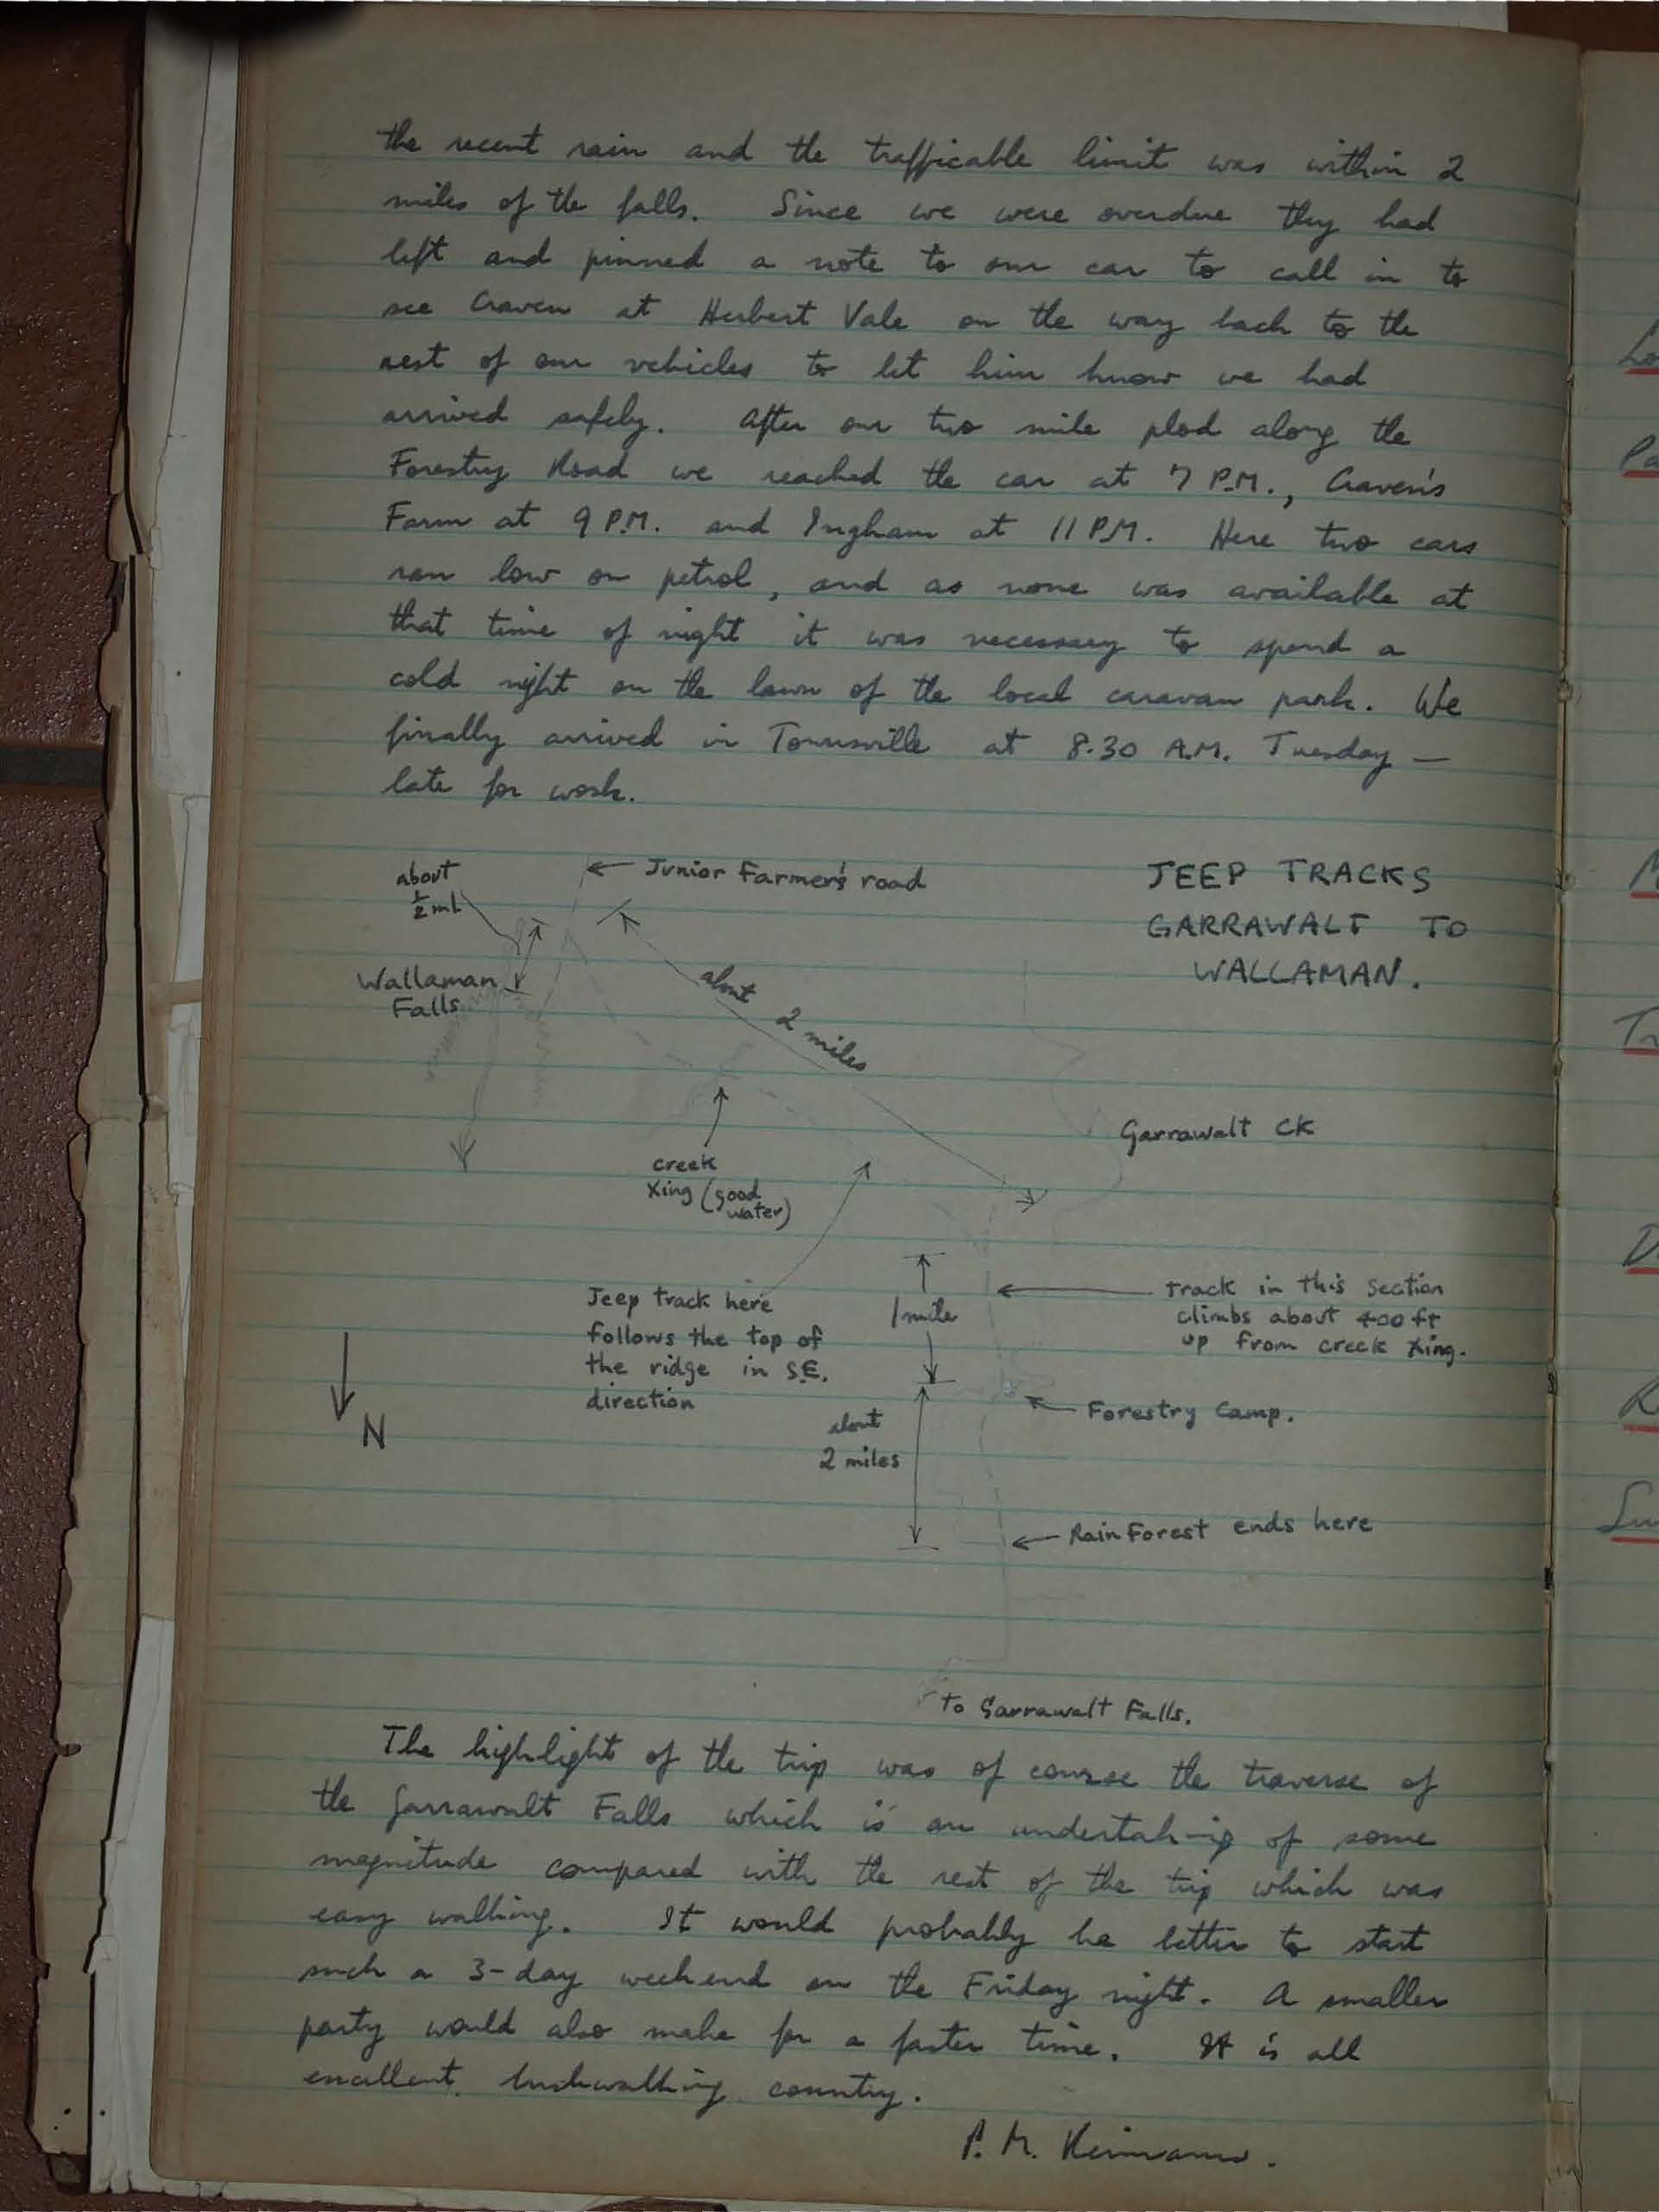 the recent rain and the trafficable limit was within 2
miles of the falls. Since we were overdue they had
left and pinned a note to our car to call in to
see Craven at Herbert Vale on the way back to the
rest of our vehicles to let him know we had
arrived safely. After our two mile plod along the
Forestry Road we reached the car at 7 P.M., Craven's
Farm at 9 P.M. and Ingham at 11 P.M. Here two cars
ran low on petrol, and as none was available at
that time of night it was necessary to spend a
cold night on the lawn of the local caravan park. We
finally arrived in Townsville at 8.30 A.M. Tuesday —
late for work.
JEEP TRACKS
GARRAWALT TO
WALLAMAN.
Junior Farmer's road
about
½ ml
Wallaman
Falls
about 2 miles
Garrawalt CK
creek
Xing (good
water)
Jeep track here
follows the top of
the ridge in S.E.
direction
1 mile
track in this section
climbs about 400 ft
up from creek Xing.
N
about
2 miles
Forestry Camp.
Rain Forest ends here
to Garrawalt Falls.
The highlight of the trip was of course the traverse of
the Garrawalt Falls which is an undertak-ing of some
magnitude compared with the rest of the trip which was
easy walking. It would probably be better to start
such a 3-day weekend on the Friday night. A smaller
party would also make for a faster time. It is all
excellent bushwalking country.
P. M.